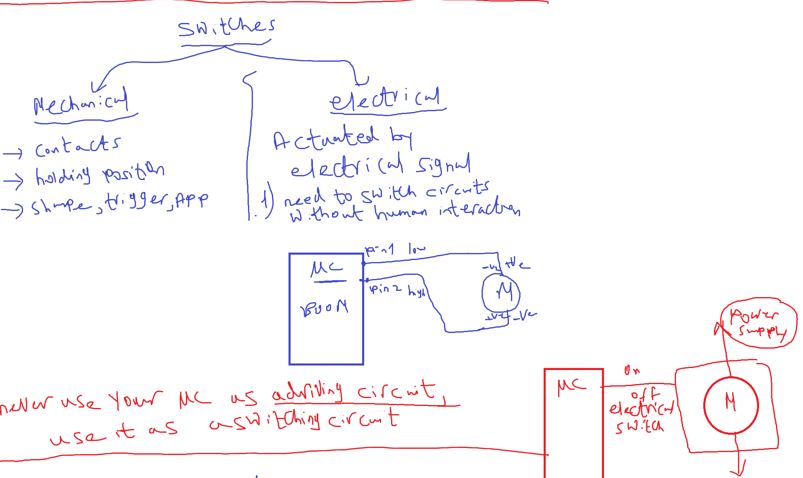 Switches
Mechanical
→ contacts
→ holding position
→ shape, trigger, App
electrical
Actuated by
electrical signal
1) need to switch circuits
without human interaction
MC
BOOM
pin1 low
pin2 high
-ve +ve
M
+ve -ve
never use your MC as a driving circuit,
use it as a switching circuit
MC
on
off
electrical
switch
Power
supply
M